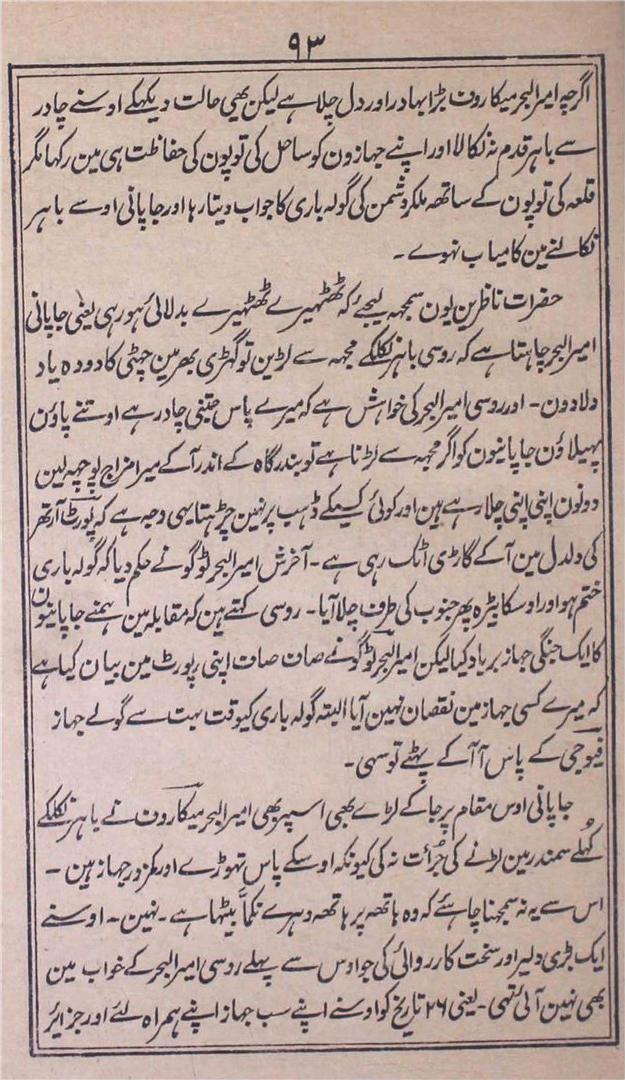 ۹۳
اگرچہ امیر البحر میکاروف بڑا بہادر اور دل چلا ہے لیکن بھی حالت دیکھکے اوسنے چادر
سے باہر قدم نہ نکالا اور اپنے جہازون کو ساحل کی توپون کی حفاظت ہی مین رکھا مگر
قلعہ کی توپون کے ساتھہ ملکر دشمن کی گولہ باری کا جواب دیتا رہا اور جاپانی اوسے باہر
نکالنے مین کامیاب نہوے ۔
حضرات ناظرین یون سمجہہ لیجئے کہ ٹھٹھیرے ٹھٹھیرے بدلائی ہو رہی یعنی جاپانی
امیر البحر چاہتا ہے کہ روسی باہر نکلکے مجہہ سے لڑین تو گھڑی بھر مین چھٹی کا دودہ یاد
دلادون ۔ اور روسی امیر البحر کی خواہش ہے کہ میرے پاس جتنی چادر ہے اوتنے پاؤن
پھیلاؤن جاپانیون کو اگر مجہہ سے لڑنا ہے تو بندرگاہ کے اندر آکے میرا مزاج پوچہہ لین
دونون اپنی اپنی چلا رہے ہین اور کوئی کسیکے ڈہب پر نہین چڑہتا یہی وجہ ہے کہ پورٹ آرتھر
کی دلدل مین آکے گاڑی اٹک رہی ہے ۔ آخرش امیر البحر ٹوگو نے حکم دیا کہ گولہ باری
ختم ہو اور اوسکا بیڑہ پھر جنوب کی طرف چلا آیا ۔ روسی کہتے ہین کہ مقابلہ مین ہمنے جاپانیون
کا ایک جنگی جہاز برباد کیا لیکن امیر البحر ٹوگو نے صاف صاف اپنی رپورٹ مین بیان کیا ہے
کہ میرے کسی جہاز مین نقصان نہین آیا البتہ گولہ باری کیوقت بہت سے گولے جہاز
فیوجی کے پاس آ آ کے پھٹے تو سہی ۔
جاپانی اوس مقام پر جاکے لڑے بھی اسپر بھی امیر البحر میکاروف نے باہر نکلکے
کُھلے سمندر مین لڑنے کی جُرأت نہ کی کیونکہ اوسکے پاس تھوڑے اور کمزور جہاز ہین ۔
اس سے یہ نہ سمجہنا چاہئے کہ وہ ہاتھہ پر ہاتھہ دہرے نکمّا بیٹھا ہے ۔ نہین ۔ اوسنے
ایک بڑی دلیر اور سخت کارروائی کی جو اوس سے پہلے روسی امیر البحر کے خواب مین
بھی نہین آئی تھی ۔ یعنی ۲۶ تاریخ کو اوسنے اپنے سب جہاز اپنے ہمراہ لئے اور جزائر